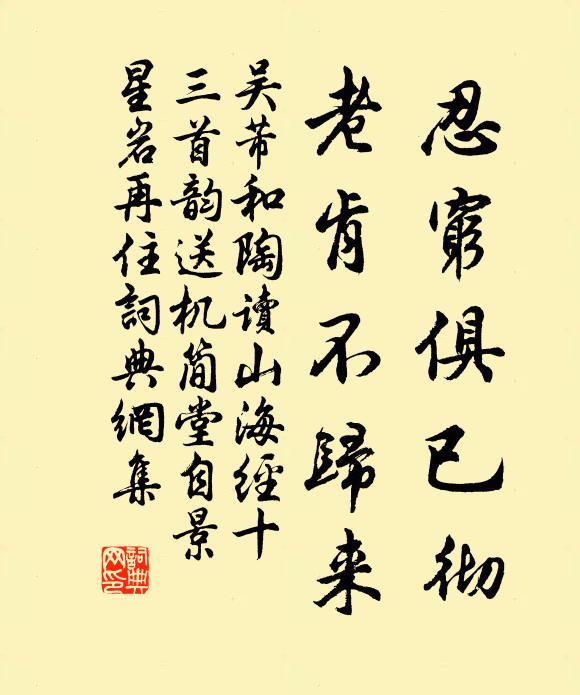 忍窮俱已彻
老肯不歸来
吴芾和陶讀山海經十
三首韵送机简堂自景
星岩再住詞典網集
詞典网印